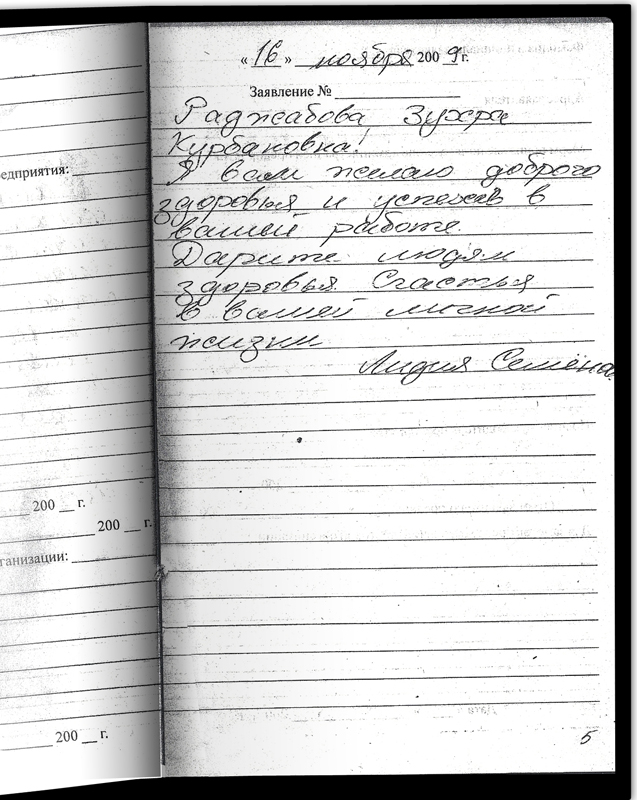 « 16 » ноября 200 9 г.
Заявление №
Раджабова Зухра
Курбановна!
Я вам желаю доброго
здоровья и успехов в
вашей работе.
Дарите людям
здоровья Счастья
в вашей личной
жизни
Лидия Семёна
едприятия:
200 г.
200 г.
ганизации:
200 г.
5